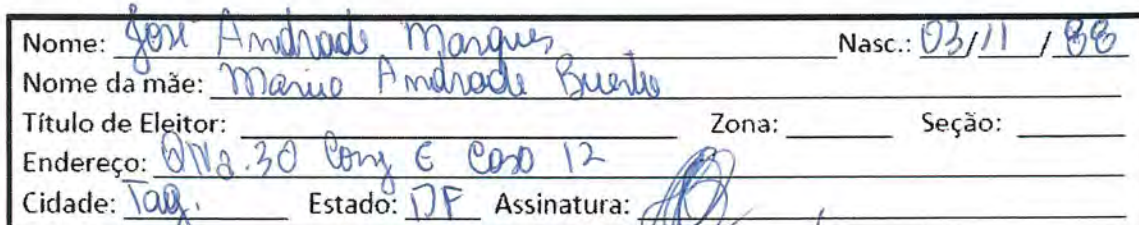 Nome: José Andrade Marques Nasc.: 03/11/88
Nome da mãe: Maria Andrade
Título de Eleitor: Zona: Seção:
Endereço: 30 Conj E Casa 12
Cidade: Tag. Estado: DF Assinatura: